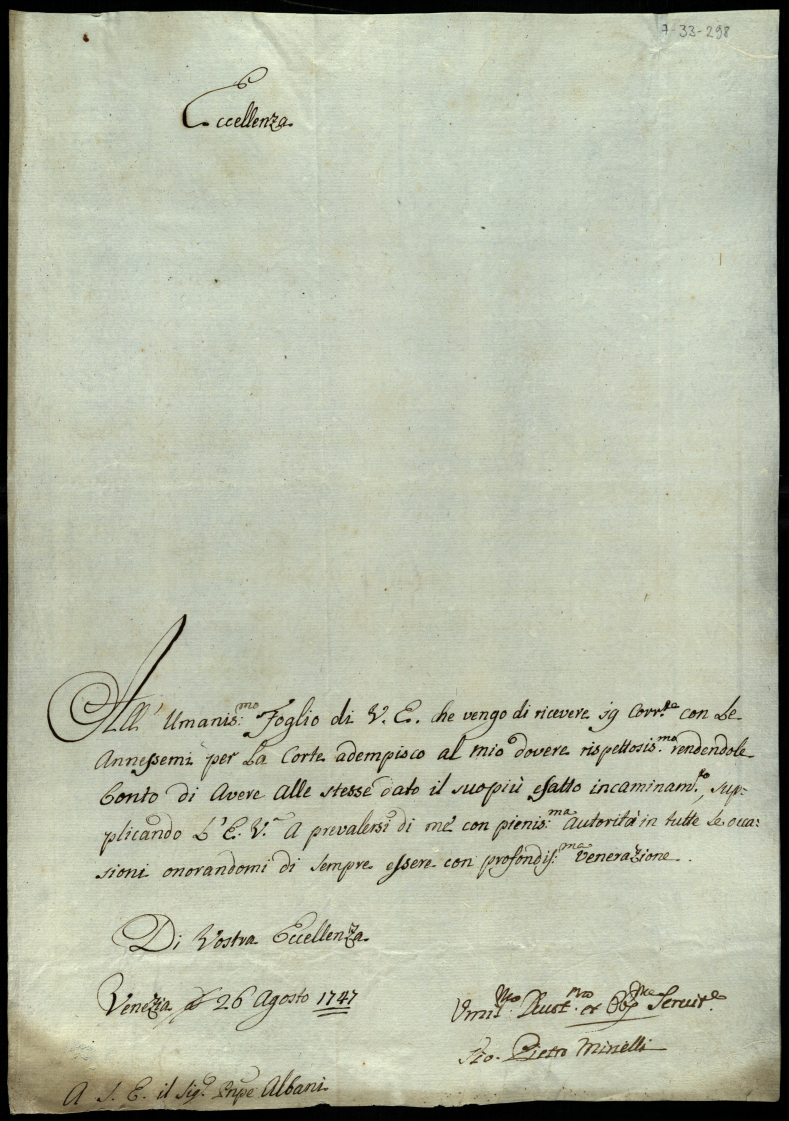 7-33-298
Eccellenza
All' Umanis:mo Foglio di V. E. che vengo di ricevere 19 Corr.te con Le
Annessemi per La Corte adempisco al mio dovere rispettosis.mo rendendole
Conto di Avere Alle stesse dato il suo più esatto incaminam.to, sup=
plicando L'E. V.a A prevalersi di me con pienis:ma Autorità in tutte Le occa:
sioni onorandomi di sempre essere con profondis:ma Venerazione.
Di Vostra Eccellenza
Venezia 26 Agosto 1747
Umil:mo Devot:mo et Servit.e
Pietro Minelli
A S. E. il Sig.r Pnpe Albani